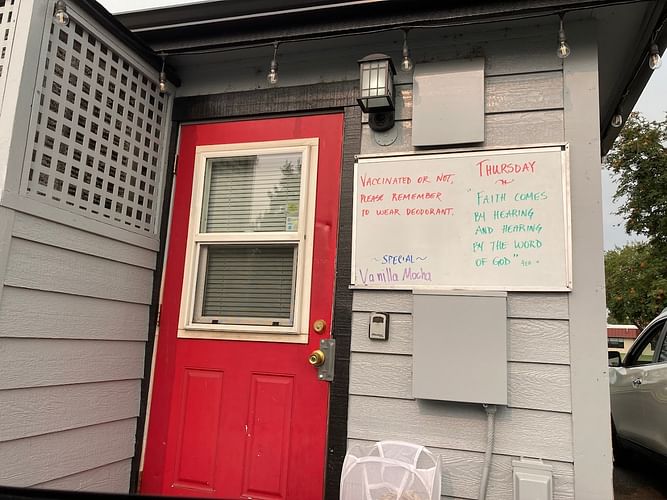 VACCINATED OR NOT,
PLEASE REMEMBER
TO WEAR DEODORANT.
~ SPECIAL ~
Vanilla Mocha
THURSDAY
"FAITH COMES
BY HEARING
AND HEARING
BY THE WORD
OF GOD"